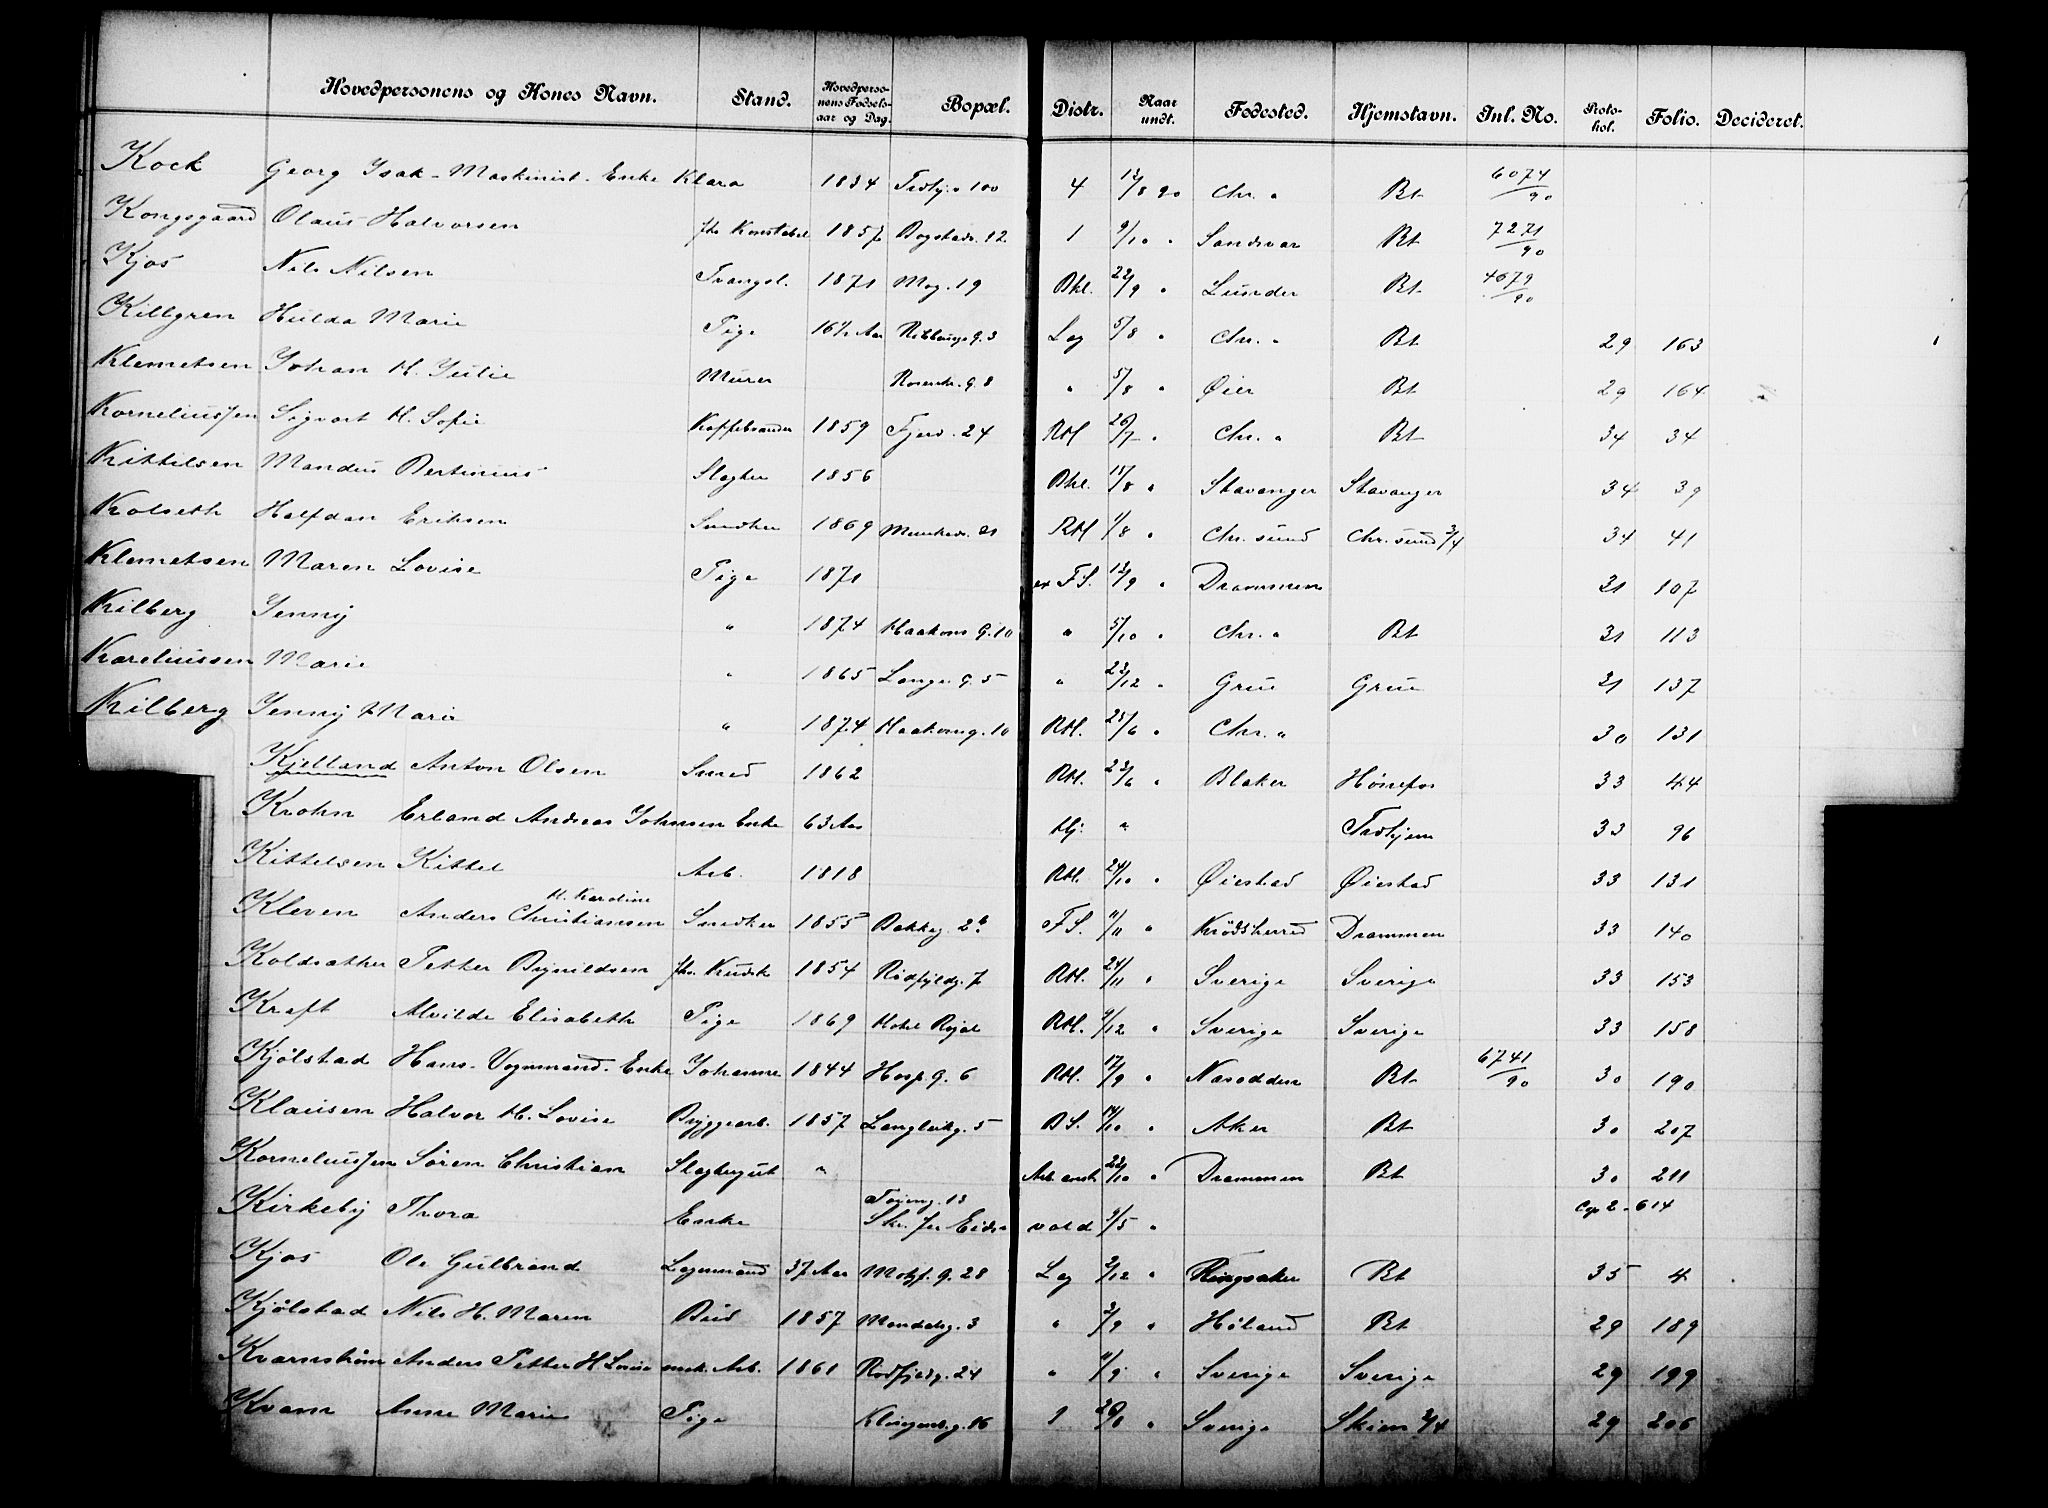 Hovedpersonens og Kones Navn. Stand. Hovedpersonens Fødselsaar og Dag. Bopæl. Distr. Naar undt. Fødested. Hjemstavn. Inl. No. Protokol. Folio. Decideret.
Kock Georg Isak - Maskinist - Enke Klara 1834 Trdhj. v 100 4 12/8 90 Chr. " Bt 6074/90
Kongsgaard Olaus Halvorsen fhv Konstabel 1857 Bogstadv. 12 1 9/10 " Sandsvær Bt 7271/90
Kjos Nils Nilsen Tvangsl. 1871 Mog. 19 Bkl. 22/9 " Lunder Bt 4679/90
Killgren Hulda Marie Pige 16½ Aar G. 3 Lag 5/8 " Chr. " Bt 29 163
Klemetsen Johan H. Julie Murer Rosenkr. G. 8 " 5/8 " Øier Bt 29 164
Korneliussen Sigvart H. Sofie Kaffebrænder 1859 Fjerd. 24 RH 26/7 " Chr. " Bt 34 34
Kittilsen Mandus Bertinius Slagter 1856 Bkl. 18/8 " Stavanger Stavanger 34 39
Kolseth Halfdan Eriksen Snedker 1869 Munkedv. 21 RH 1/8 " Chr. sund Chr. sund 3/4 34 41
Klemetsen Maren Lovise Pige 1871 FS. 12/9 " Drammen 31 107
Kilberg Jenny " 1874 Haakons G. 10 " 5/10 " Chr. " Bt 31 113
Kareliussen Marie " 1865 Lange. G. 5 " 23/12 " Grue Grue 31 137
Kilberg Jenny Marie " 1874 Haakong. 10 RH. 25/6 " Chr. " 30 131
Kjelland Anton Olsen Smed 1862 RH. 23/6 " Blaker Hønefos 33 44
Krohn Erland Andreas Johnsen Enke 63 Aar Hj. " Trdhjem 33 96
Kittelsen Kittel Arb. 1818 RH. 24/10 " Øiestad Øiestad 33 131
Kleven Anders Christiansen H. Karoline Snedker 1855 Bakkeg. 2b FS. 11/11 " Krødsherred Drammen 33 140
Koldsæther Petter Bynildsen fhv. Kudsk 1854 Rødfyldg. 7 RH. 24/11 " Sverige Sverige 33 153
Kraft Alvilde Elisabeth Pige 1869 Hotel Royal RH. 9/12 " Sverige Sverige 33 158
Kjølstad Hans - Vognmand - Enke Johanne 1844 Hosp. G. 6 RH. 17/9 " Næsodden Bt 6741/90 30 190
Klausen Halvor H. Lovise Bryggearb. 1857 Langleikg. 5 BS. 14/10 " Aker Bt 30 207
Korneliussen Søren Christian Slagtergut " Arb anst 22/10 " Drammen Bt 30 211
Kirkeby Thora Enke Tøieng. 13 Skr. fra Eidsvold 9/5 " Cop 2 - 614
Kjos Ole Gulbrand Løgnmand 37 Aar Motzf. G. 28 Lag 2/12 " Ringsaker Bt 35 4
Kjølstad Nils H. Maren Bud 1857 Mandalsg. 3 " 2/9 " Høland Bt 29 189
Kvarnstrøm Anders Petter H Lovise mek. Arb. 1861 Rødfjedg. 24 " 11/9 " Sverige Sverige 29 199
Kvam Anne Marie Pige Klingenbg. 16 1 20/8 " Sverige Skien 3/4 29 206